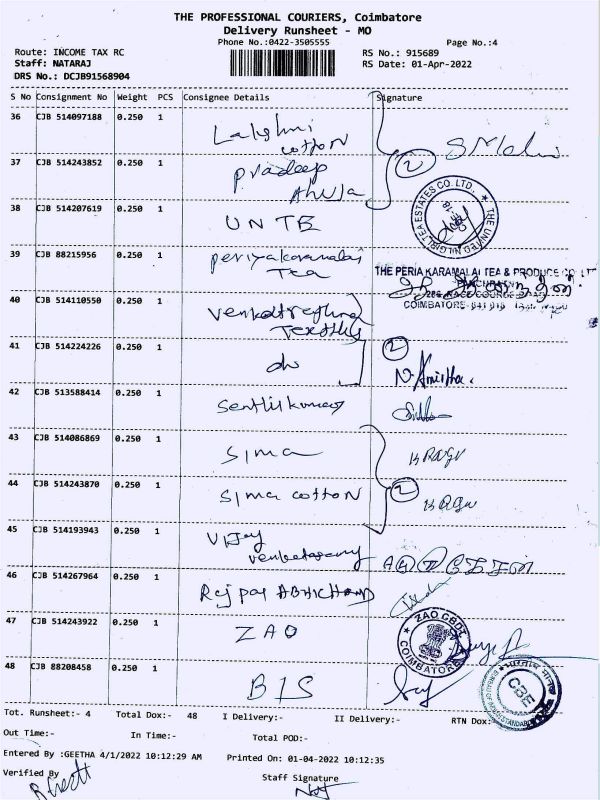 THE PROFESSIONAL COURIERS, Coimbatore
Delivery Runsheet - MO
Phone No.:0422-3505555
Page No.:4
Route: INCOME TAX RC
RS No.: 915689
Staff: NATARAJ
RS Date: 01-Apr-2022
DRS No.: DCJB91568904
S No Consignment No Weight PCS Consignee Details Signature
36 CJB 514097188 0.250 1 Lakshmi
cotton
37 CJB 514243852 0.250 1 Pradeep
Ahuja
2
38 CJB 514207619 0.250 1 UNTE
THE UNITED NILGIRI TEA ESTATES CO. LTD.
39 CJB 88215956 0.250 1 Periyakaramalai
Tea
THE PERIA KARAMALAI TEA & PRODUCE CO LT
COIMBATORE
40 CJB 514110550 0.250 1
41 CJB 514224226 0.250 1 do
2
N. Amirtha.
42 CJB 513588414 0.250 1 Senthilkumar
43 CJB 514086869 0.250 1 Sima
K Ragu
44 CJB 514243870 0.250 1 Sima cotton
2
K Ragu
45 CJB 514193943 0.250 1 Vijay
46 CJB 514267964 0.250 1 Rajpal ABHICHAND
47 CJB 514243922 0.250 1 ZAO
ZAO CBDT
COIMBATORE
48 CJB 88208458 0.250 1 BIS
CBE
Tot. Runsheet:- 4 Total Dox:- 48 I Delivery:- II Delivery:- RTN Dox:
Out Time:- In Time:- Total POD:-
Entered By :GEETHA 4/1/2022 10:12:29 AM Printed On: 01-04-2022 10:12:35
Verified By
Staff Signature